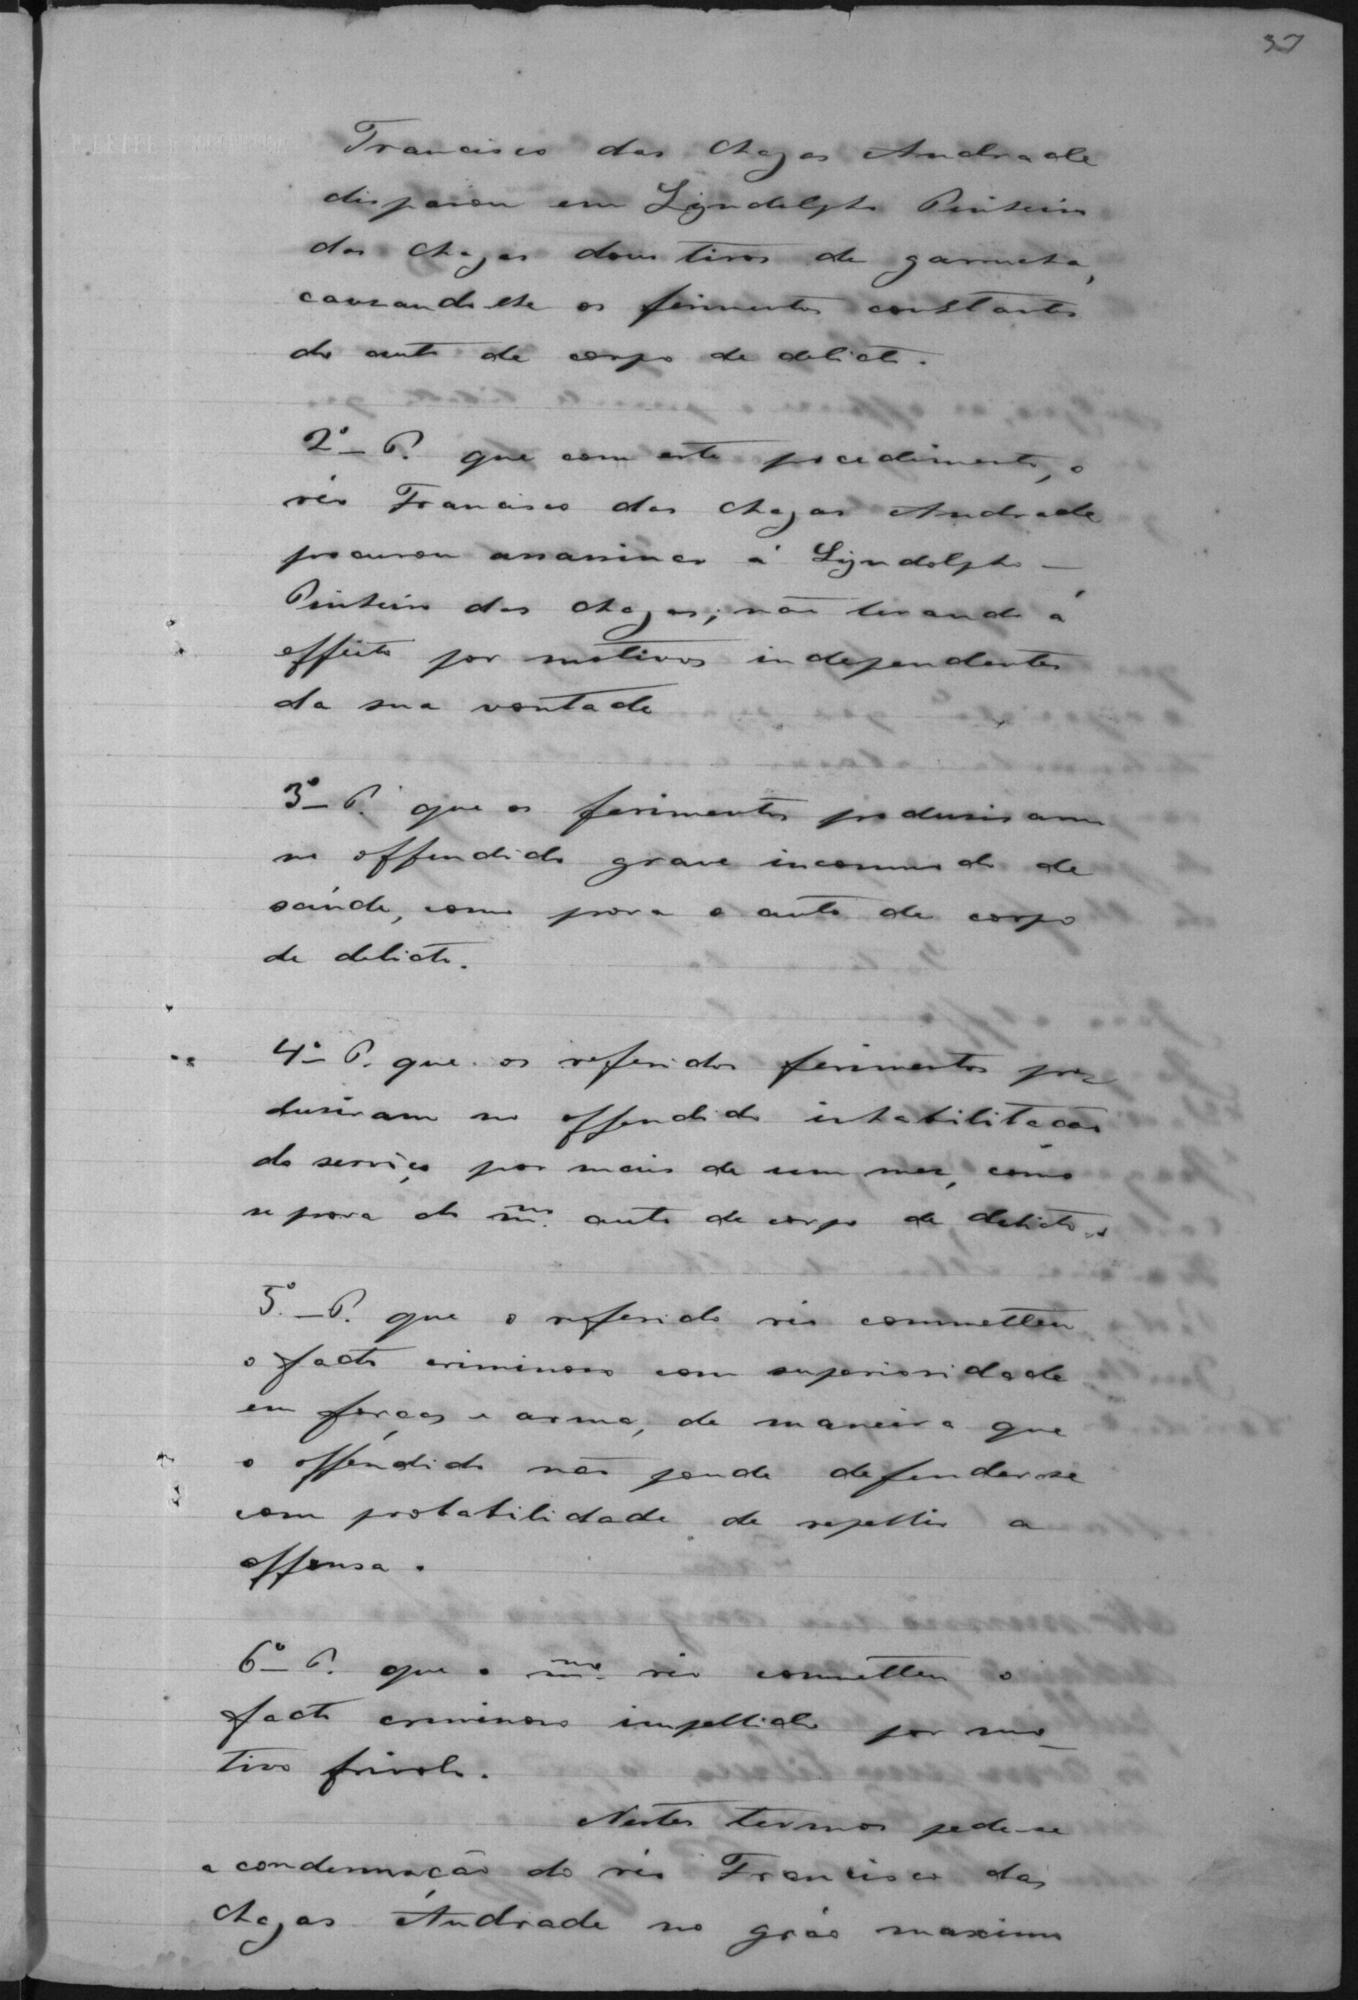 37
Francisco das Chagas Andrade
disparou em Lyndolpho Pinheiro
das Chagas dous tiros de garrucha,
causando-lhe os ferimentos constantes
do auto de corpo de delicto.
2º - P. que com este procedimento, o
réo Francisco das Chagas Andrade
procurou assassinar á Lyndolpho -
Pinheiro das Chagas; não levando á
effeito por motivos independentes
da sua vontade
3º - P. que os ferimentos produsiram
no offendido grave incommodo de
saúde, como prova o auto de corpo
de delicto.
4º - P. que os referidos ferimentos pro-
dusiram no offendido inhabilitação
do serviço por mais de um mez, como
se prova do mmo. auto de corpo de delicto.
5º. - P. que o referido réo commetteu
o facto criminoso com superioridade
em forças e arma, de maneira que
o offendido não poude defender-se
com probabilidade de repellir a
offensa.
6º - P. que o mmo. réo commetteu o
facto criminoso impellido por mo-
tivo frivolo.
Nestes termos pede-se
a condemnação do réo Francisco das
Chagas Andrade no gráo maximo